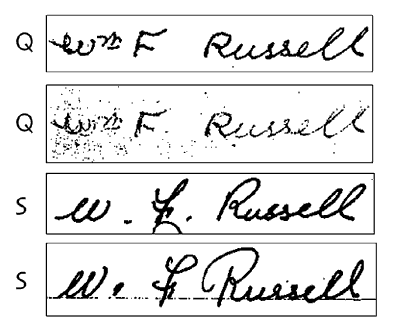 Q Wm F Russell
Q Wm F. Russell
S W. F. Russell
S W. F Russell